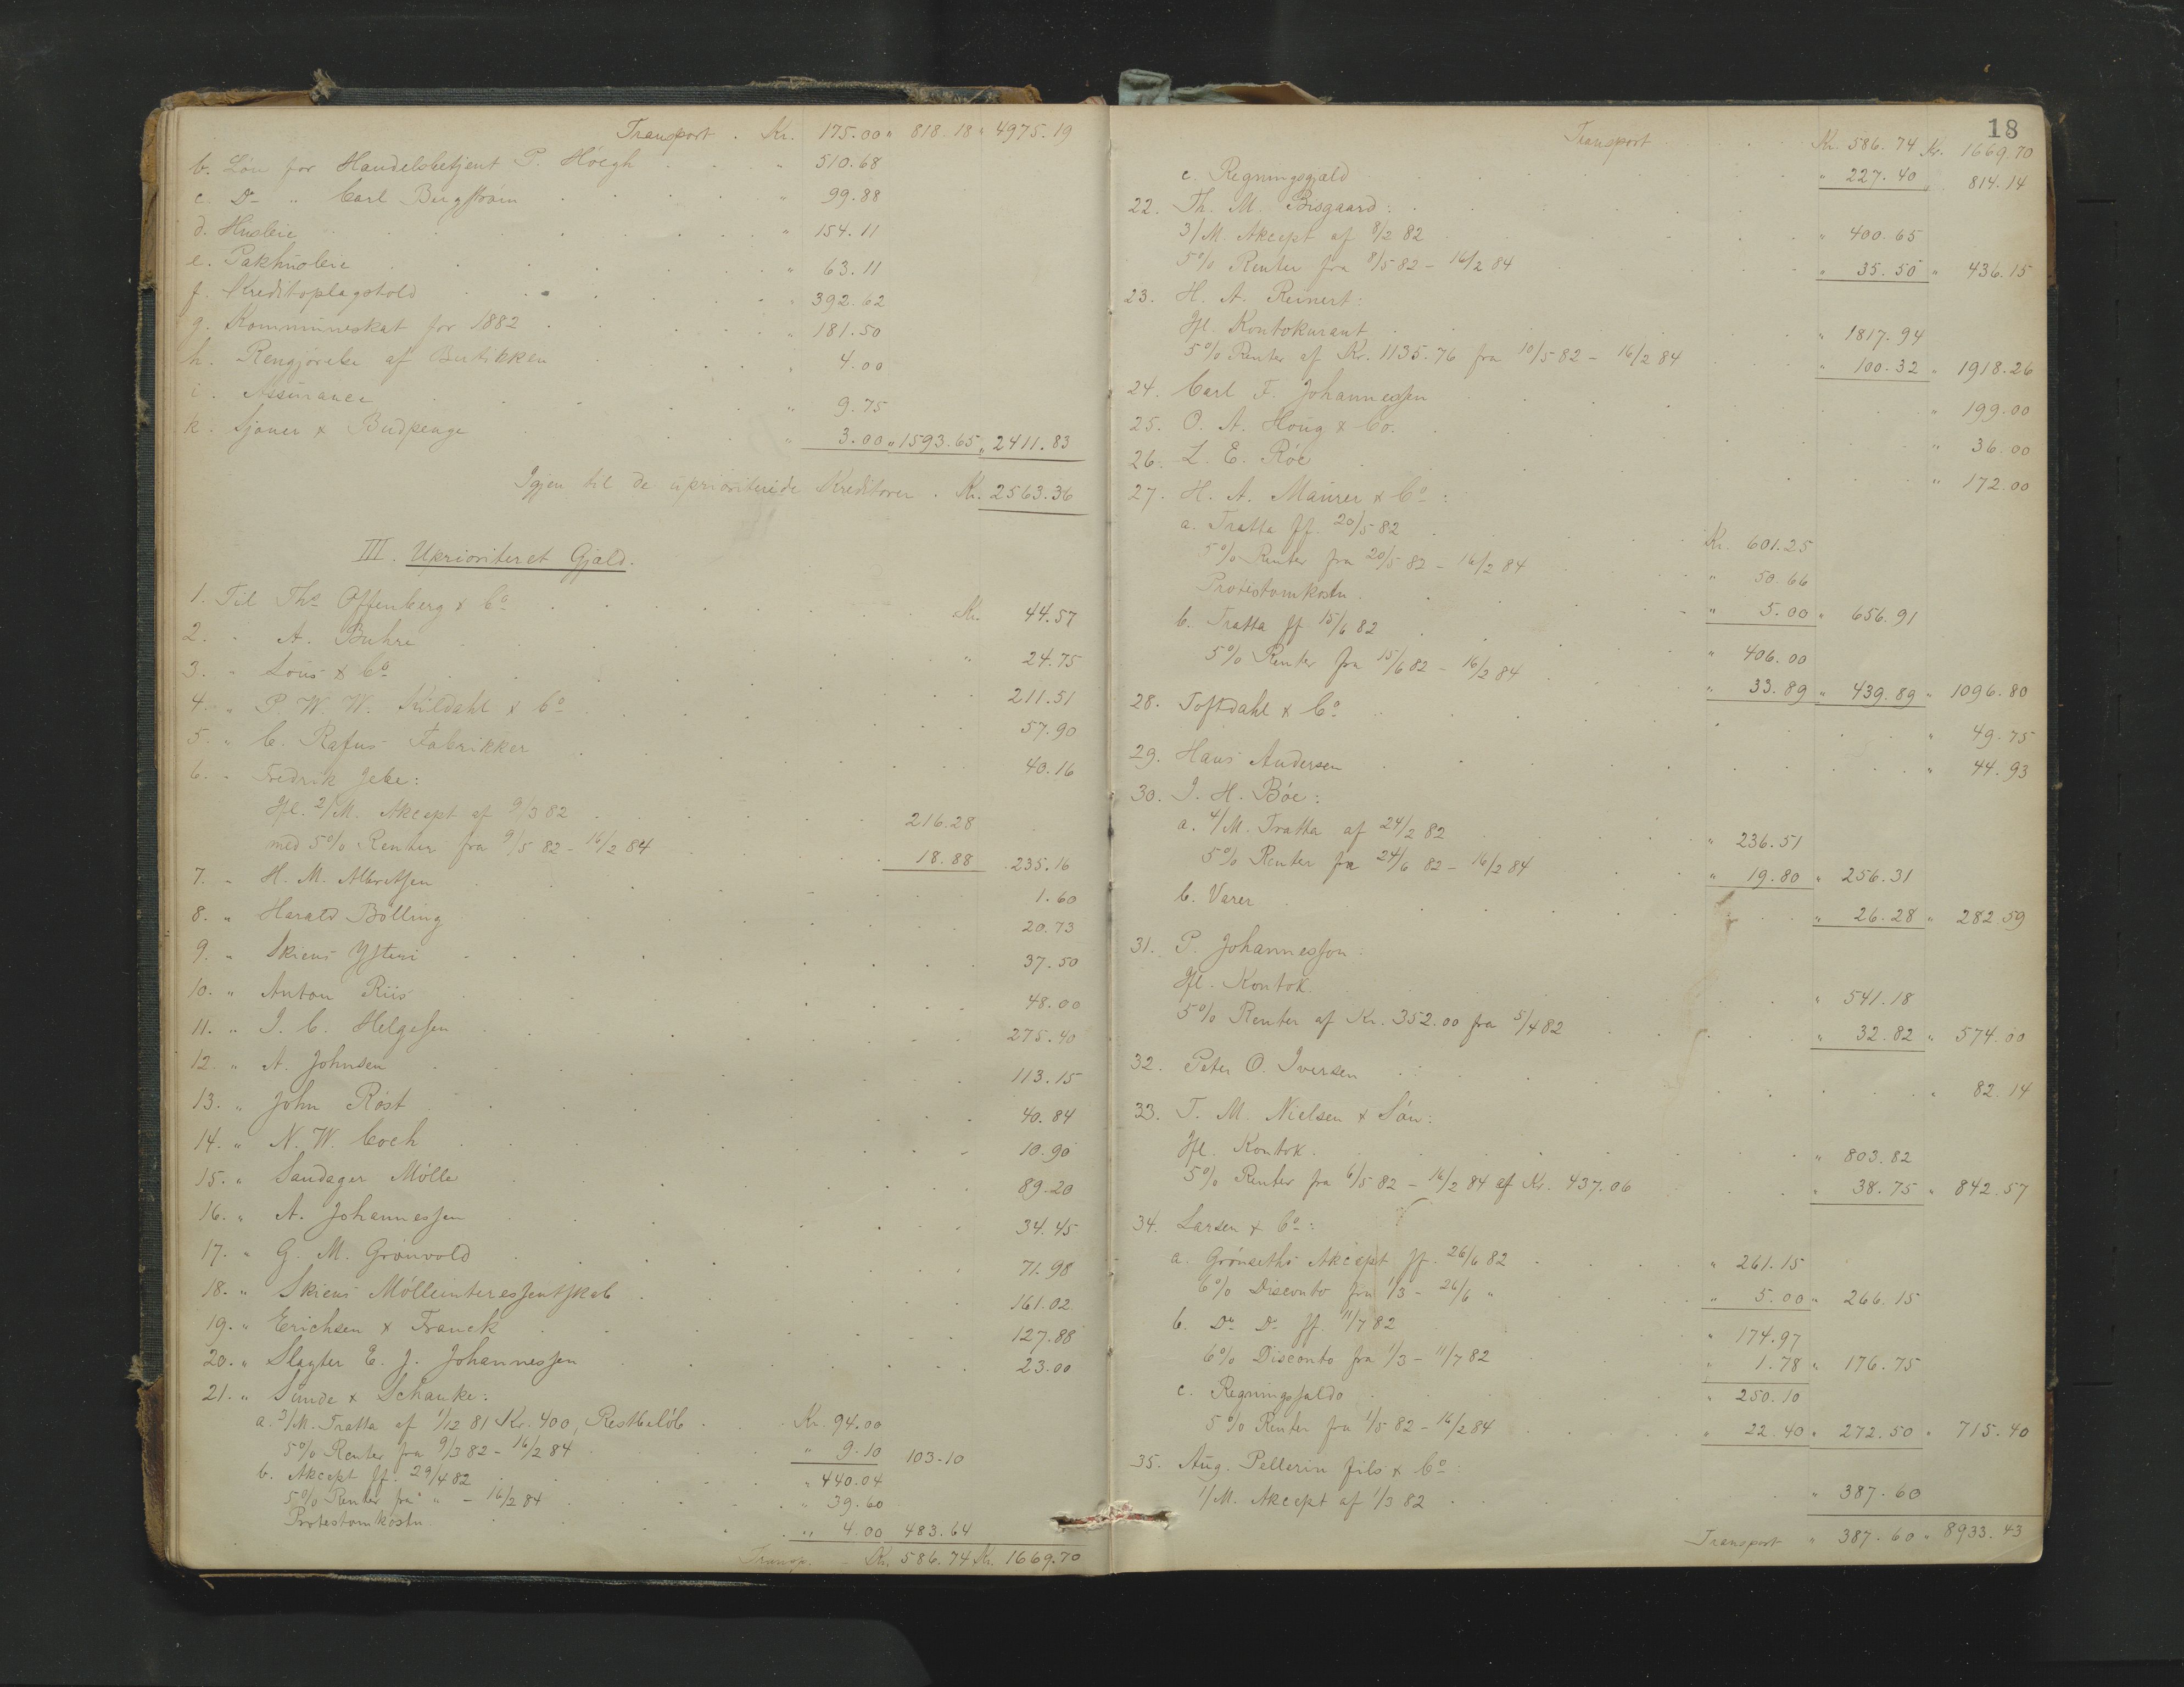 Transport . Kr. 175.00 „ 818.18 „ 4975.19
b. Løn for Handelsbetjent P. Höegh . . . „ 510.68
c. Do „ Carl Bergstrøm . . . „ 99.88
d. Husleie . . . „ 154.11
e. Pakhusleie . . . „ 63.11
f. Kreditoplagstold . . . „ 392.62
g. Kommuneskat for 1882 . . . „ 181.50
h. Rengjørelse af Butikken . . . „ 4.00
i. Assurance . . . „ 9.75
k. Sjouer & Budpenge . . . „ 3.00 „ 1593.65 „ 2411.83
Igjen til de uprioriterede Kreditorer . Kr. 2563.36
III. Uprioriteret Gjæld.
1. Til Ths Offenberg & Co . . . Kr. 44.57
2. „ A. Buhre . . . „ 24.75
3. „ Lous & Co . . . 211.51
4. „ P. W. W. Kildahl & Co . . . 57.90
5. „ C. Rafns Fabrikker . . . 40.16
6. „ Fredrik Jebe:
Ifl. 2/M. Akcept af 9/3 82 . . . 216.28
med 5% Renter fra 9/5 82 - 16/2 84 . . . 18.88 235.16
7. „ H. M. Albretsen . . . 1.60
8. „ Harald Bölling . . . 20.73
9. „ Skiens Ysteri . . . 37.50
10. „ Anton Riis . . . 48.00
11. „ J. C. Helgesen . . . 275.40
12. „ A. Johnsen . . . 113.15
13. „ John Röst . . . 40.84
14. „ N. W. Coch . . . 10.90
15. „ Sandager Mölle . . . 89.20
16. „ A. Johannessen . . . 34.45
17. „ G. M. Grönvold . . . 71.98
18. „ Skiens Mölleinteressentskab . . . 161.02
19. „ Erichsen & Franck . . . 127.88
20. „ Slagter E. J. Johannessen . . . 23.00
21. „ Sunde & Schanke:
a. 3/M. Tratta af 1/12 81 Kr. 400, Restbelöb . . Kr. 94.00
5% Renter fra 9/3 82 - 16/2 84 . . . „ 9.10 103.10
b. Akcept ff. 29/4 82 . . . „ 440.04
5% Renter fra „ „ - 16/2 84 . . . „ 39.60
Protestomkostn. . . . „ 4.00 483.64
Transp. - Kr. 586.74 Kr. 1669.70
18
Transport . . . Kr. 586.74 Kr. 1669.70
c. Regningsgjæld . . . „ 227.40 „ 814.14
22. Th. M. Bisgaard: . . .
3/M. Akcept af 8/2 82 . . . „ 400.65
5% Renter fra 8/5 82 - 16/2 84 . . . „ 35.50 „ 436.15
23. H. A. Reinert:
Ifl. Kontokurant . . . „ 1817.94
5% Renter af Kr. 1135.76 fra 10/5 82 - 16/2 84 . . . „ 100.32 „ 1918.26
24. Carl F. Johannessen . . . „ 199.00
25. O. A. Houg & Co. . . . „ 36.00
26. L. E. Röe . . . „ 172.00
27. H. A. Maurer & Co:
a. Tratta ff. 20/5 82 . . . Kr. 601.25
5% Renter fra 20/5 82 - 16/2 84 . . . „ 50.66
Protestomkostn. . . . „ 5.00 „ 656.91
b. Tratta ff 15/6 82 . . . „ 406.00
5% Renter fra 15/6 82 - 16/2 84 . . . „ 33.89 „ 439.89 „ 1096.80
28. Toftdahl & Co . . . „ 49.75
29. Hans Andersen . . . „ 44.93
30. J. H. Böe:
a. 4/M. Tratta af 24/2 82 . . . „ 236.51
5% Renter fra 24/6 82 - 16/2 84 . . . „ 19.80 „ 256.31
b. Varer . . . „ 26.28 „ 282.59
31. P. Johannesson:
Ifl. Kontok. . . . „ 541.18
5% Renter af Kr. 352.00 fra 5/4 82 . . . „ 32.82 „ 574.00
32. Peter O. Iversen . . . „ 82.14
33. T. M. Nielsen & Sön:
Ifl. Kontok. . . . „ 803.82
5% Renter fra 6/5 82 - 16/2 84 af Kr. 437.06 . . . „ 38.75 „ 842.57
34. Larsen & Co:
a. Grönseths Akcept ff. 26/6 82 . . . „ 261.15
6% Disconto fra 1/3 - 26/6 „ . . . „ 5.00 „ 266.15
b. Do Do ff. 11/7 82 . . . „ 174.97
6% Disconto fra 1/3 - 11/7 82 . . . „ 1.78 „ 176.75
c. Regningssaldo . . . „ 250.10
5% Renter fra 1/5 82 - 16/2 84 . . . „ 22.40 „ 272.50 „ 715.40
35. Aug. Pellerin fils & Co:
1/M. Akcept af 1/3 82 . . . „ 387.60
Transport „ 387.60 „ 8933.43